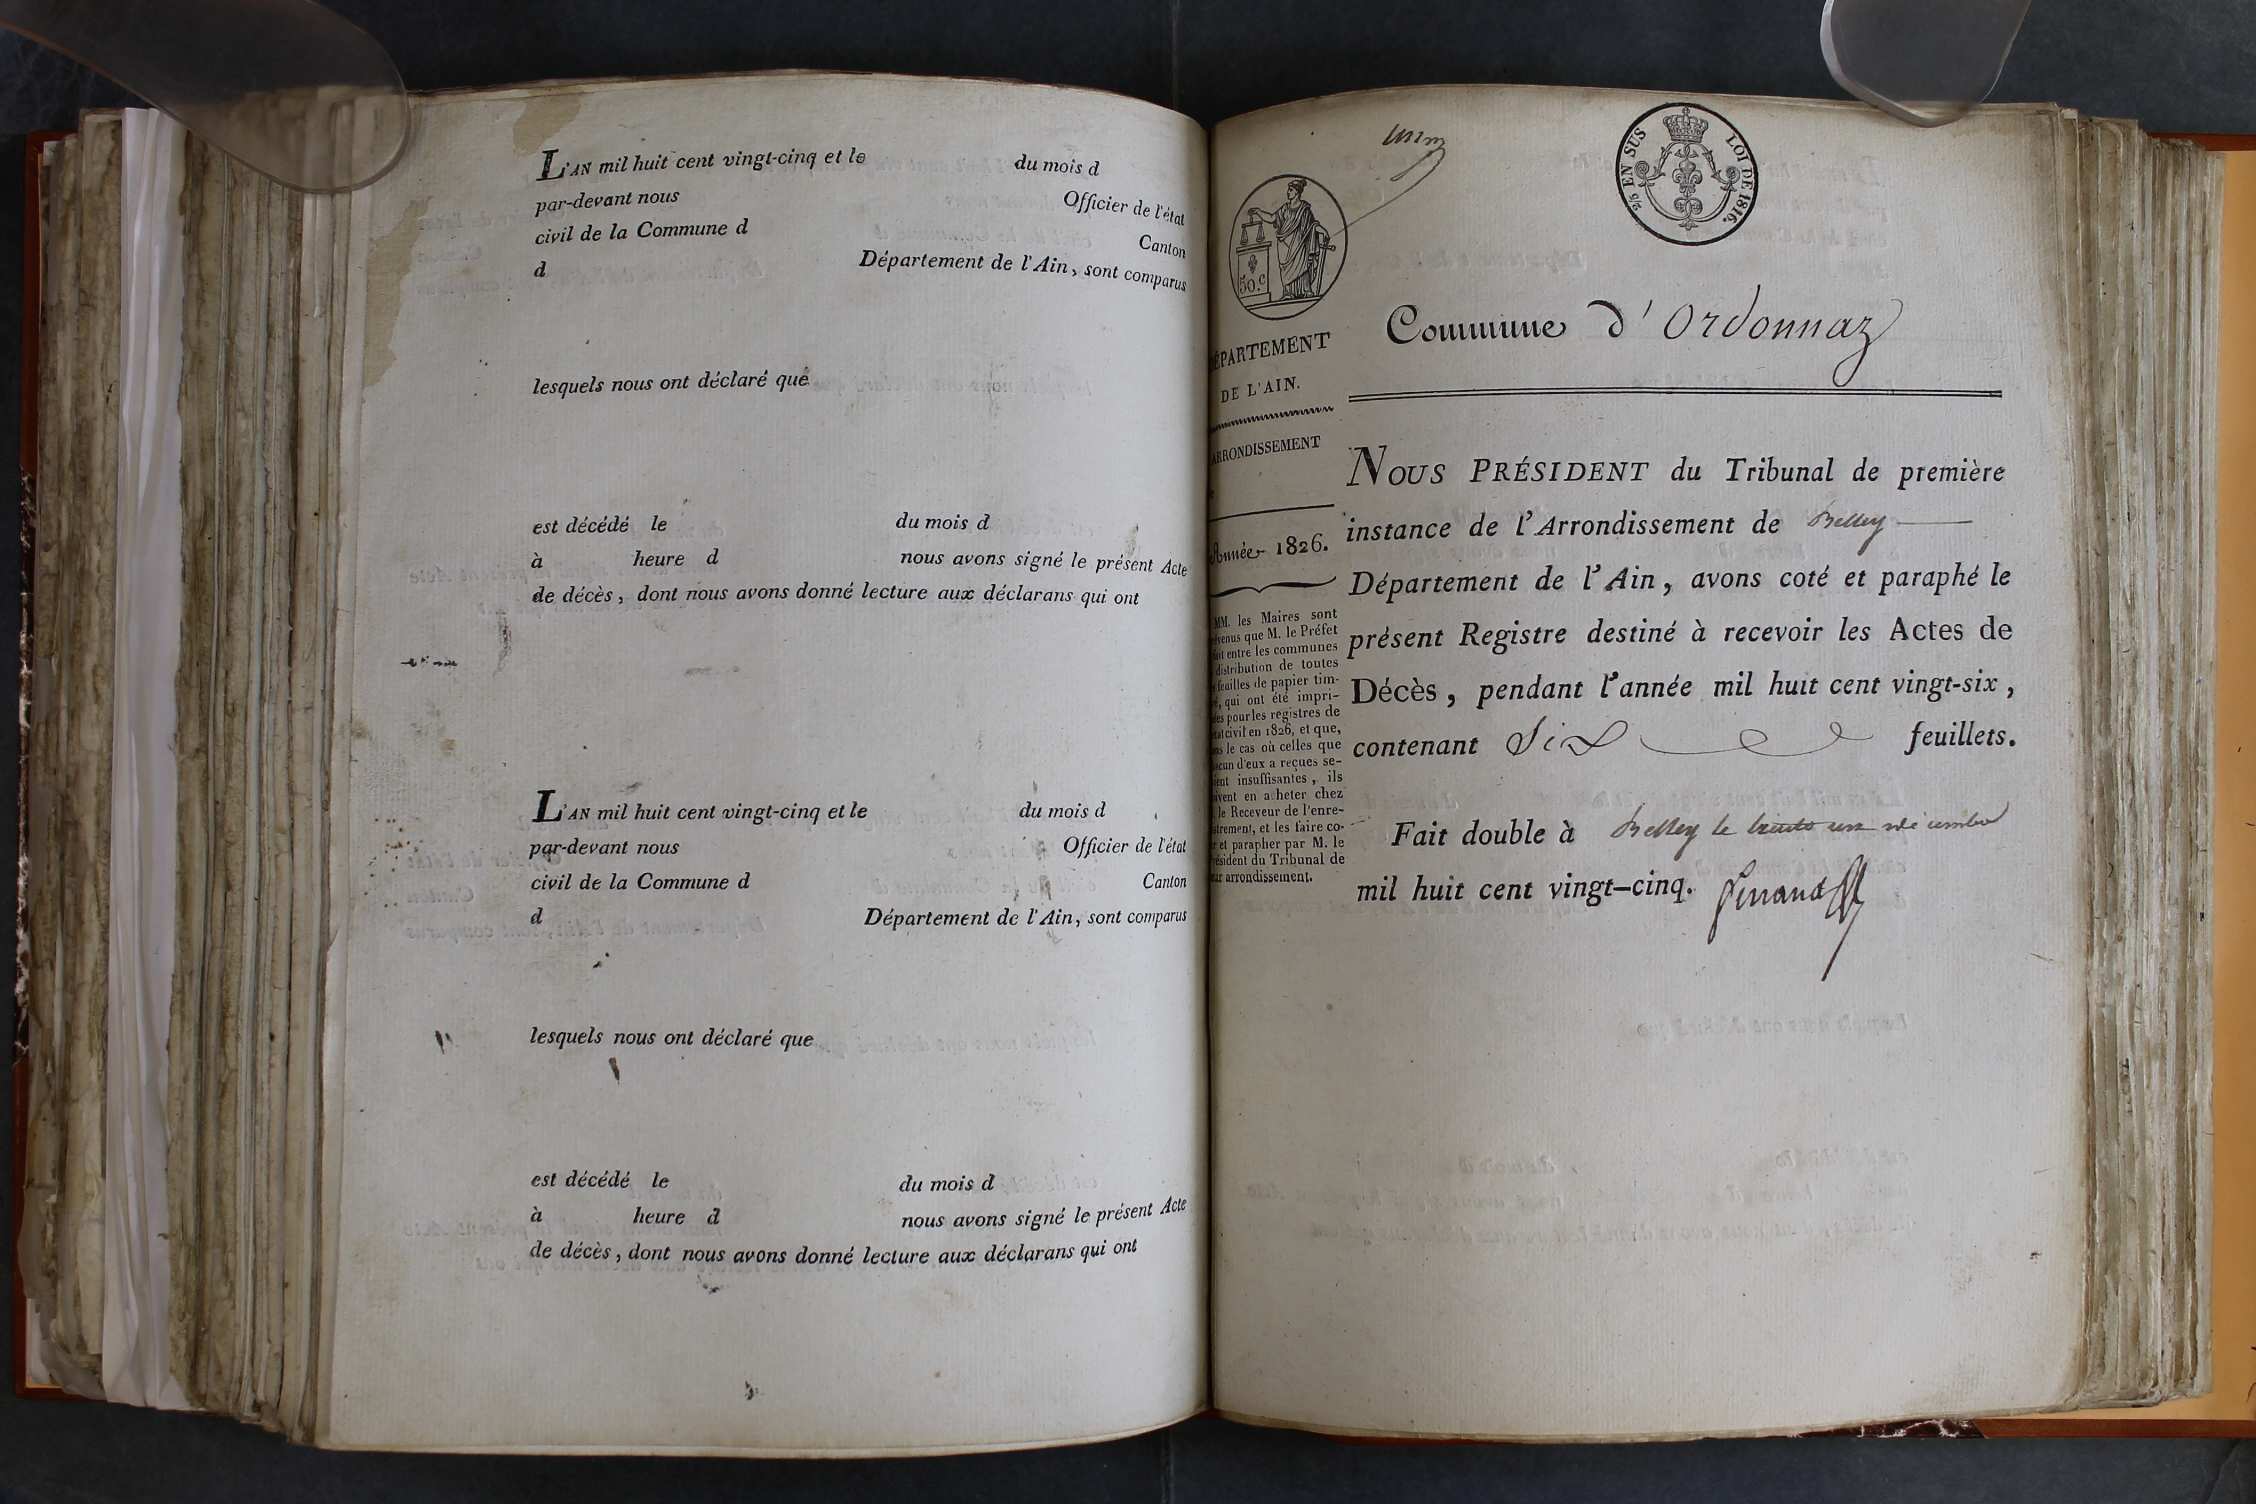 L'AN mil huit cent vingt-cinq et le du mois d
par-devant nous Officier de l'état
civil de la Commune d Canton
d Département de l'Ain, sont comparus
lesquels nous ont déclaré que
est décédé le du mois d
à heure d nous avons signé le présent Acte
de décès, dont nous avons donné lecture aux déclarans qui ont
L'AN mil huit cent vingt-cinq et le du mois d
par-devant nous Officier de l'état
civil de la Commune d Canton
d Département de l'Ain, sont comparus
lesquels nous ont déclaré que
est décédé le du mois d
à heure d nous avons signé le présent Acte
de décès, dont nous avons donné lecture aux déclarans qui ont
EN SUS LOI DE 1816.
50.c
DÉPARTEMENT
DE L'AIN.
ARRONDISSEMENT
Année 1826.
MM. les Maires sont
venus que M. le Préfet
fait entre les communes
distribution de toutes
feuilles de papier tim-
qui ont été impri-
pour les registres de
civil en 1826, et que,
le cas où celles que
cun d'eux a reçues se-
ient insuffisantes, ils
ivent en acheter chez
le Receveur de l'enre-
strement, et les faire co-
et parapher par M. le
résident du Tribunal de
arrondissement.
Commune d'Ordonnaz
NOUS PRÉSIDENT du Tribunal de première
instance de l'Arrondissement de Belley
Département de l'Ain, avons coté et paraphé le
présent Registre destiné à recevoir les Actes de
Décès, pendant l'année mil huit cent vingt-six,
contenant Six feuillets.
Fait double à Belley le trente un décembre
mil huit cent vingt-cinq.